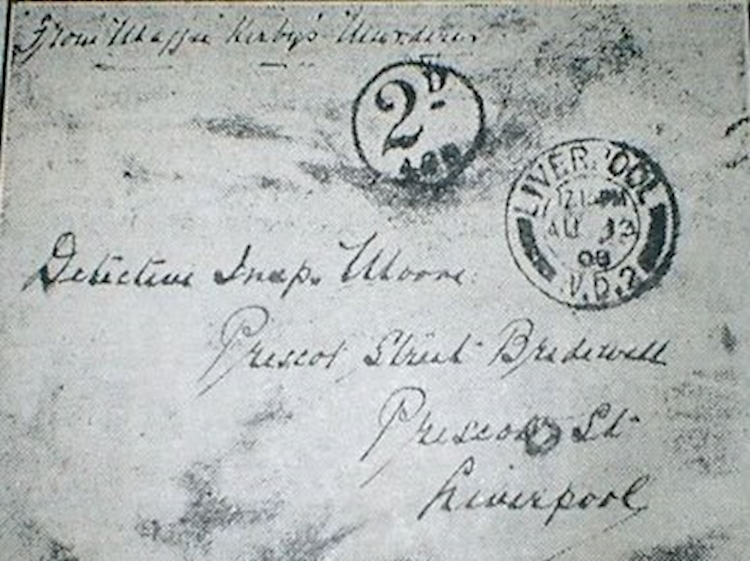 From Maggie Kirby's Murderer
2D
LIVERPOOL
12.15 PM
AU 13
08
Detective Insp. Moore
Prescot Street Bridewell
Prescot St
Liverpool